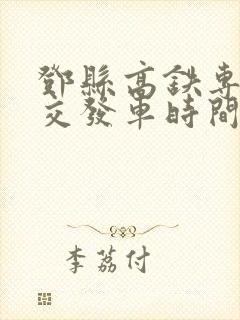 鄧縣高鉄専
交發車時間
李荔付